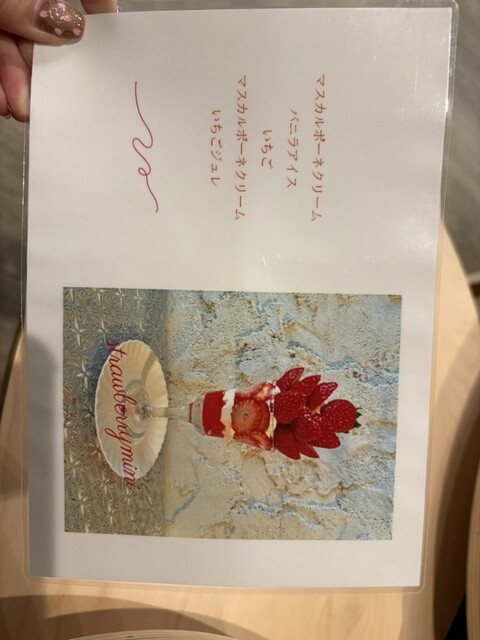 マスカルポーネクリーム
バニラアイス
いちご
マスカルポーネクリーム
いちごジュレ
strawberrymini